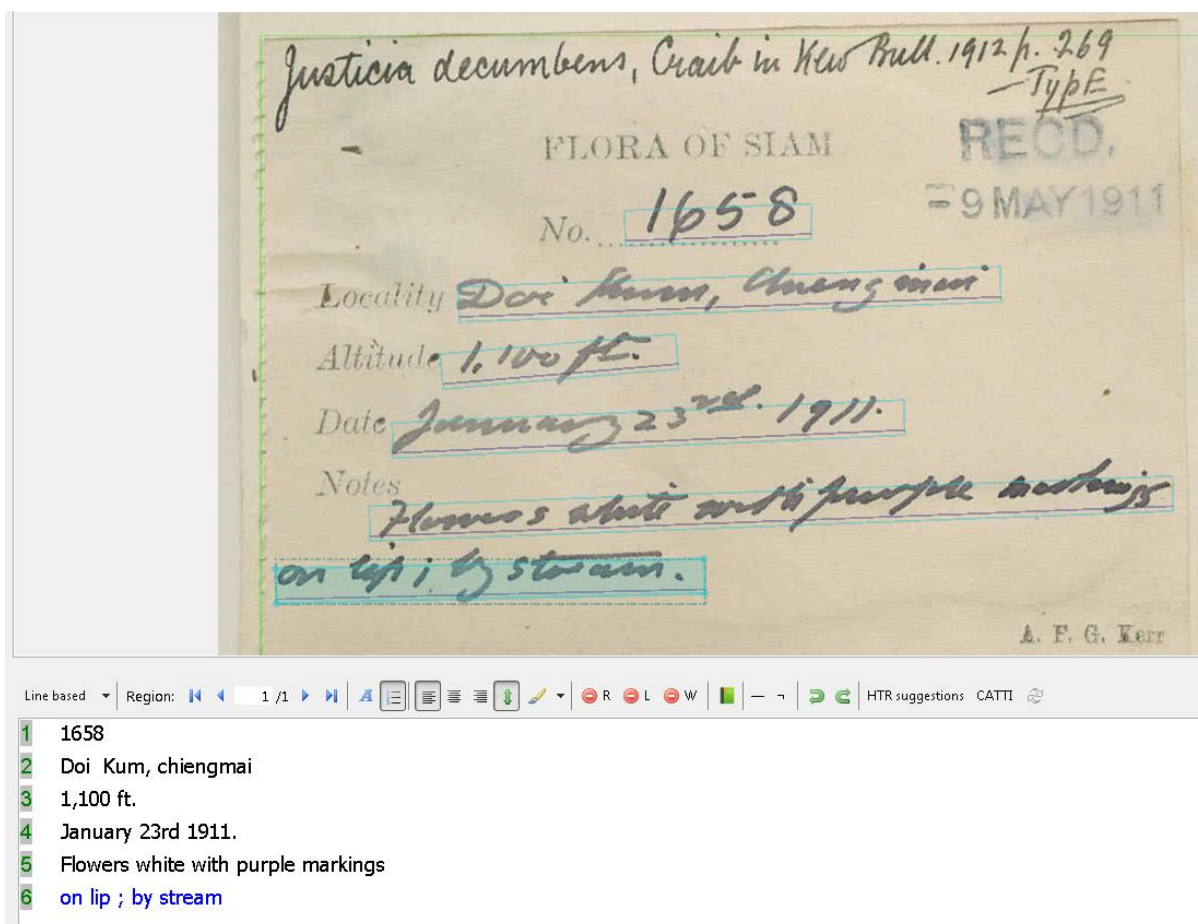 Justicia decumbens, Craib in Kew Bull. 1912 p. 269
— Type
FLORA OF SIAM
RECD.
= 9 MAY 1911
No. 1658
Locality Doi Kum, Chiengmai
Altitude 1,100 ft.
Date January 23rd. 1911.
Notes
Flowers white with purple markings
on lip ; by stream.
A. F. G. Kerr
Line based Region: 1 /1 A R L W HTR suggestions CATTI
1 1658
2 Doi Kum, chiengmai
3 1,100 ft.
4 January 23rd 1911.
5 Flowers white with purple markings
6 on lip ; by stream